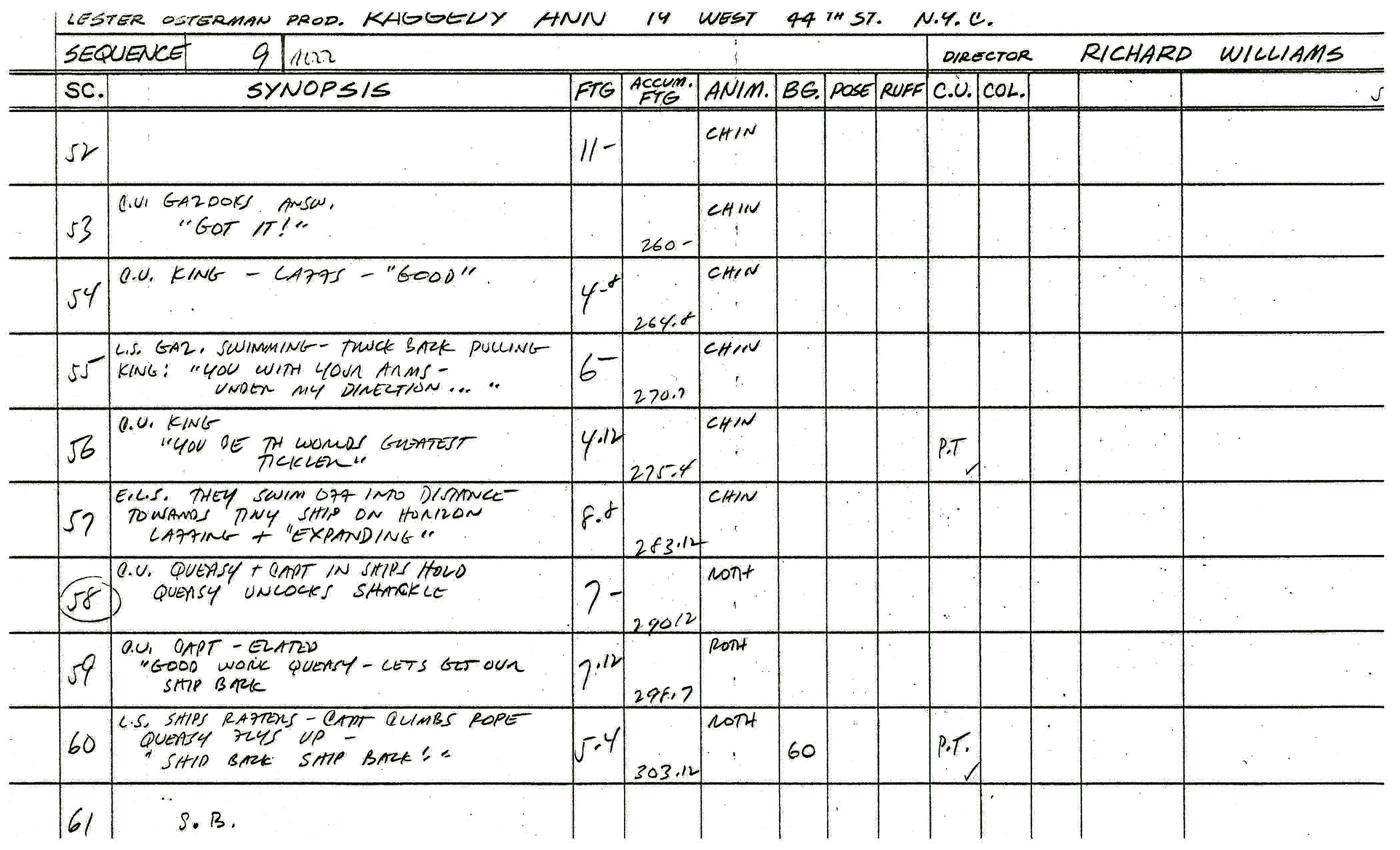 LESTER OSTERMAN PROD. RAGGEDY ANN 19 WEST 44TH ST. N.Y.C.
SEQUENCE 9 DIRECTOR RICHARD WILLIAMS
SC. SYNOPSIS FTG ACCUM. FTG ANIM. BG. POSE RUFF C.U. COL.
52 11- CHIN
53 C.U. GAZOOKS ANSW. CHIN
"GOT IT!"
260-
54 C.U. KING - LAFFS - "GOOD" 4-8 CHIN
264.8
55 L.S. GAZ. SWIMMING - TRUCK BACK PULLING 6- CHIN
KING: "YOU WITH YOUR ARMS -
UNDER MY DIRECTION... "
56 C.U. KING 4.12 CHIN
"YOU BE TH WORLDS GREATEST P.T
TICKLER"
275.4
57 E.L.S. THEY SWIM OFF INTO DISTANCE 8.8 CHIN
TOWARDS TINY SHIP ON HORIZON
LAFFING + "EXPANDING"
283.12
58 C.U. QUEASY + CAPT IN SHIPS HOLD 7- ROTH
QUEASY UNLOCKS SHACKLE
29012
59 C.U. CAPT - ELATED 7.12 ROTH
"GOOD WORK QUEASY - LETS GET OUR
SHIP BACK
60 L.S. SHIPS RAFTERS - CAPT CLIMBS ROPE 5.4 ROTH
QUEASY FLYS UP - 60 P.T.
" SHIP BACK SHIP BACK! "
303.12
61 S.B.